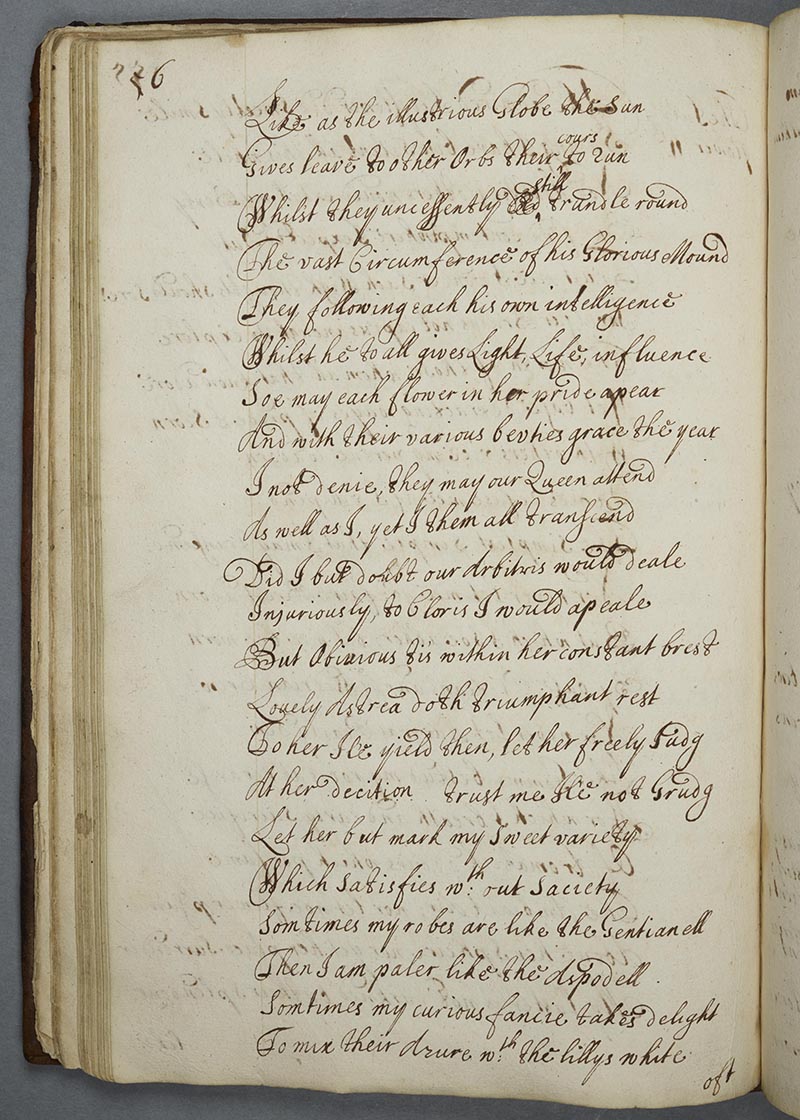 226
Like as the illustrious Globe the Sun
Gives leave to other Orbs their cours to run
Whilst they uncessently still trundle round
The vast Circumference of his Glorious Mound
They following each his own intelligence
Whilst he to all gives Light, Life, influence
Soe may each flower in her pride apear
And with their various bevties grace the year
I not denie, they may our Queen attend
As well as I, yet I them all transcend
Did I but doubt our Arbitris would deale
Injuriously, to Cloris I would apeale
But Obivious tis within her constant brest
Lovely Astrea doth triumphant rest
To her Ile yield then, let her freely Judg
At her decition trust me Ile not Grudg
Let her but mark my Sweet variety
Which Satisfies wth: out Saciety
Somtimes my robes are like the Gentianell
Then I am paler like the Aspodell.
Somtimes my curious fancie takes delight
To mix their Azure wth: the lillys white
oft